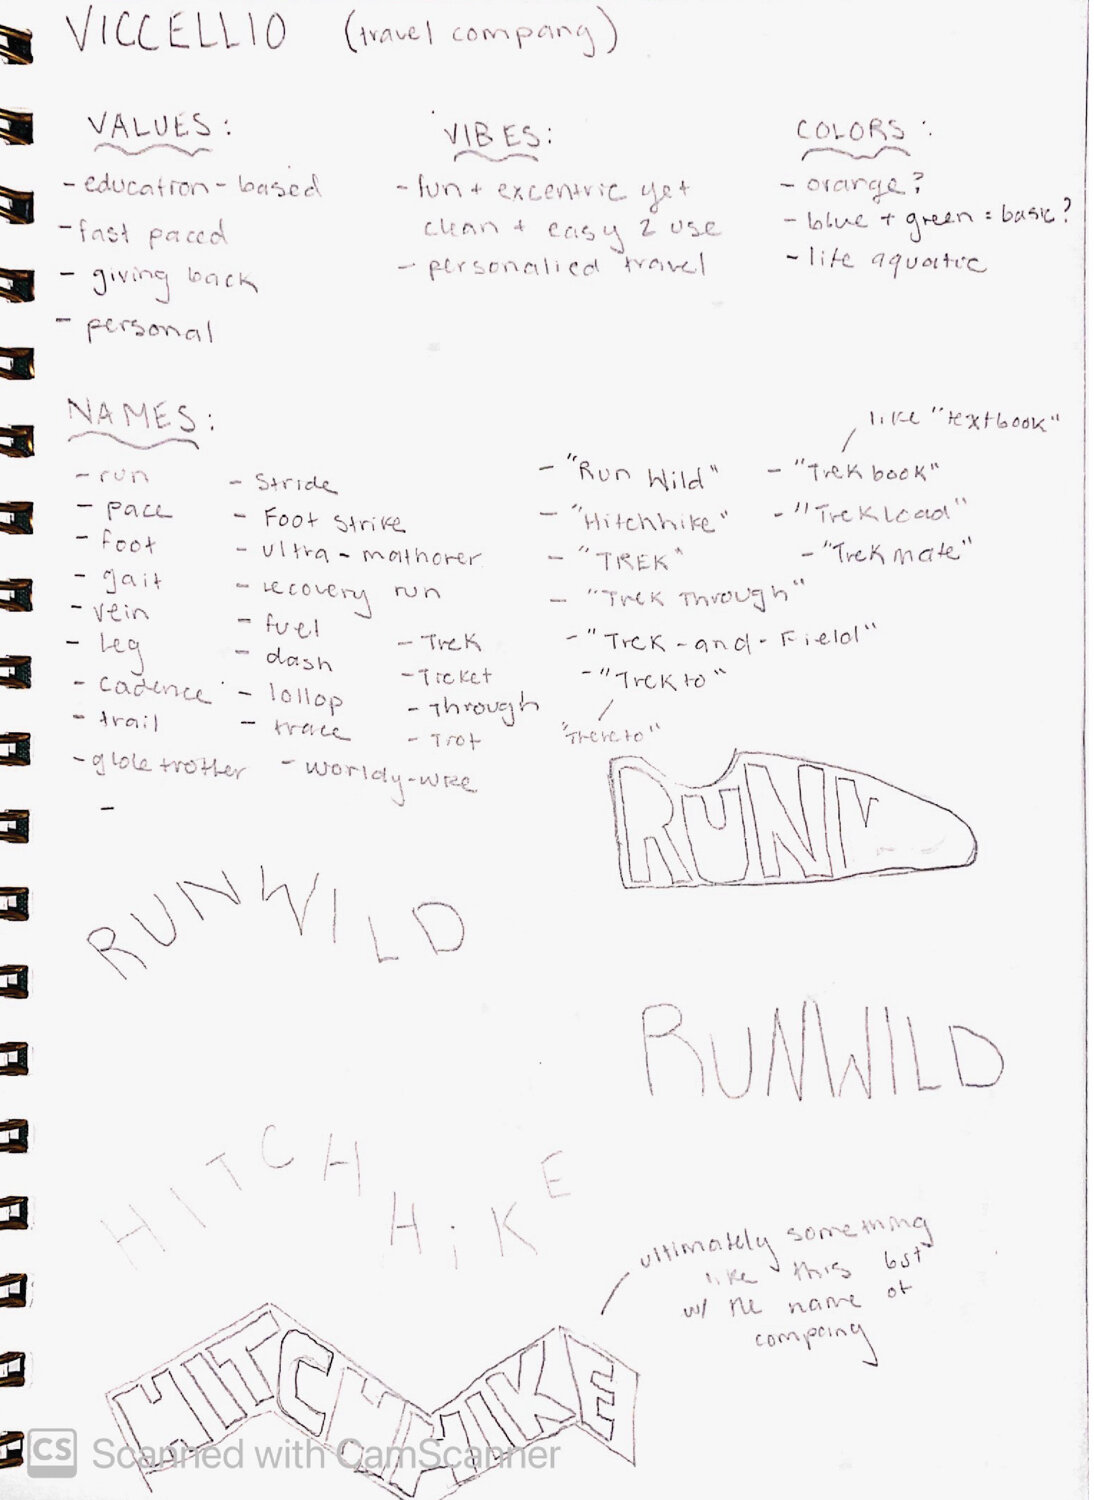 VICCELLIO (travel company)
VALUES:
- education-based
- fast paced
- giving back
- personal
VIBES:
- fun + excentric yet
clean + easy 2 use
- personalied travel
COLORS:
- orange?
- blue + green = basic?
- life aquatic
NAMES:
- run
- pace
- foot
- gait
- vein
- leg
- cadence
- trail
- globe trotter
-
- stride
- Foot strike
- ultra-mathoner
- recovery run
- fuel
- dash
- lollop
- trace
- worldy-wise
- Trek
- Ticket
- Through
- Trot
- "Run Wild"
- "Hitchhike"
- "TREK"
- "Trek Through"
- "Trek-and-Field"
- "Trek to"
"Thereto"
like "textbook"
- "Trek book"
- "Trek Lead"
- "Trek mate"
RUNW
RUNWILD
RUNWILD
HITCHHiKE
ultimately something
like this but
w/ the name of
company
HITCHHIKE
CS Scanned with CamScanner